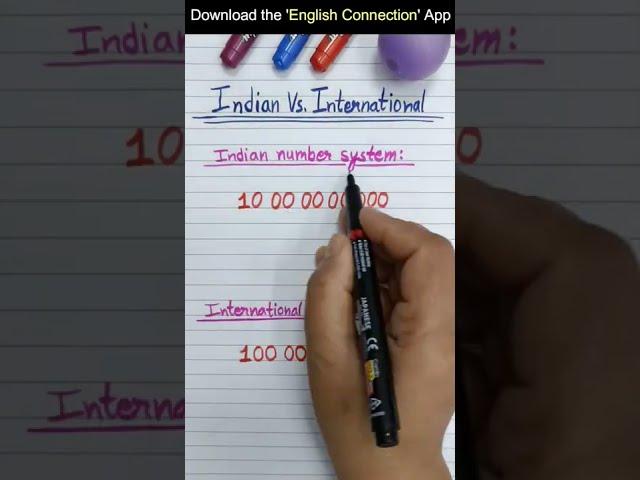 Download the 'English Connection' App
Indian Vs. International
Indian number system:
10 00 00 00 000
International
100 00